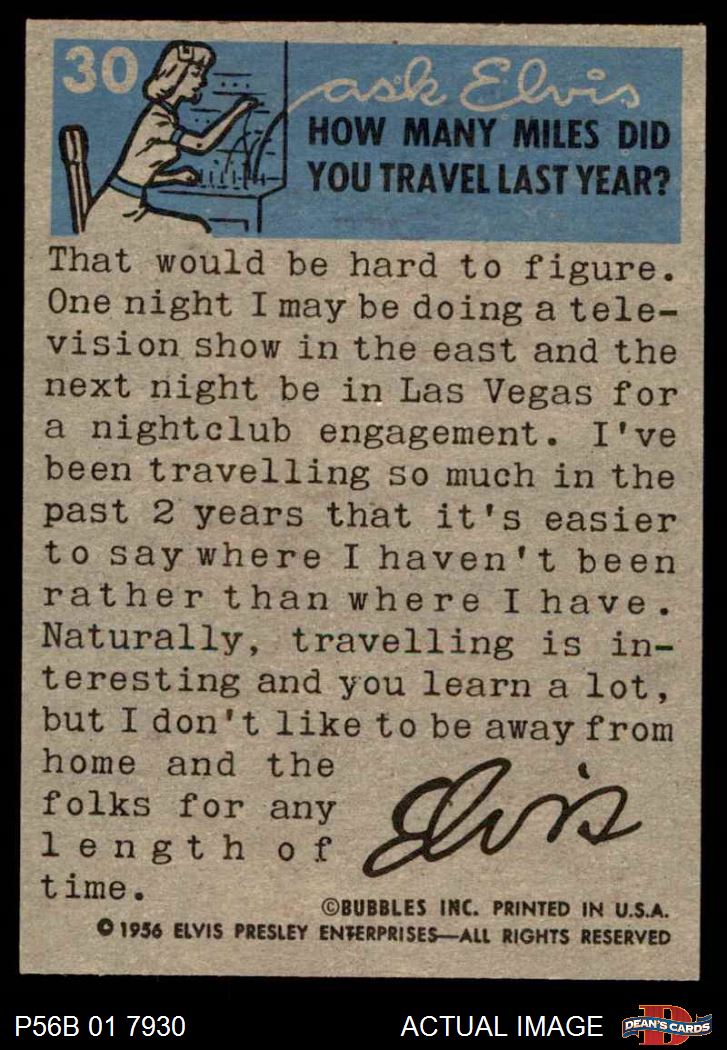 30
ask Elvis
HOW MANY MILES DID
YOU TRAVEL LAST YEAR?
That would be hard to figure.
One night I may be doing a tele-
vision show in the east and the
next night be in Las Vegas for
a nightclub engagement. I've
been travelling so much in the
past 2 years that it's easier
to say where I haven't been
rather than where I have.
Naturally, travelling is in-
teresting and you learn a lot,
but I don't like to be away from
home and the
folks for any
length of
time.
Elvis
©BUBBLES INC. PRINTED IN U.S.A.
© 1956 ELVIS PRESLEY ENTERPRISES—ALL RIGHTS RESERVED
P56B 01 7930 ACTUAL IMAGE
D
DEAN'S CARDS